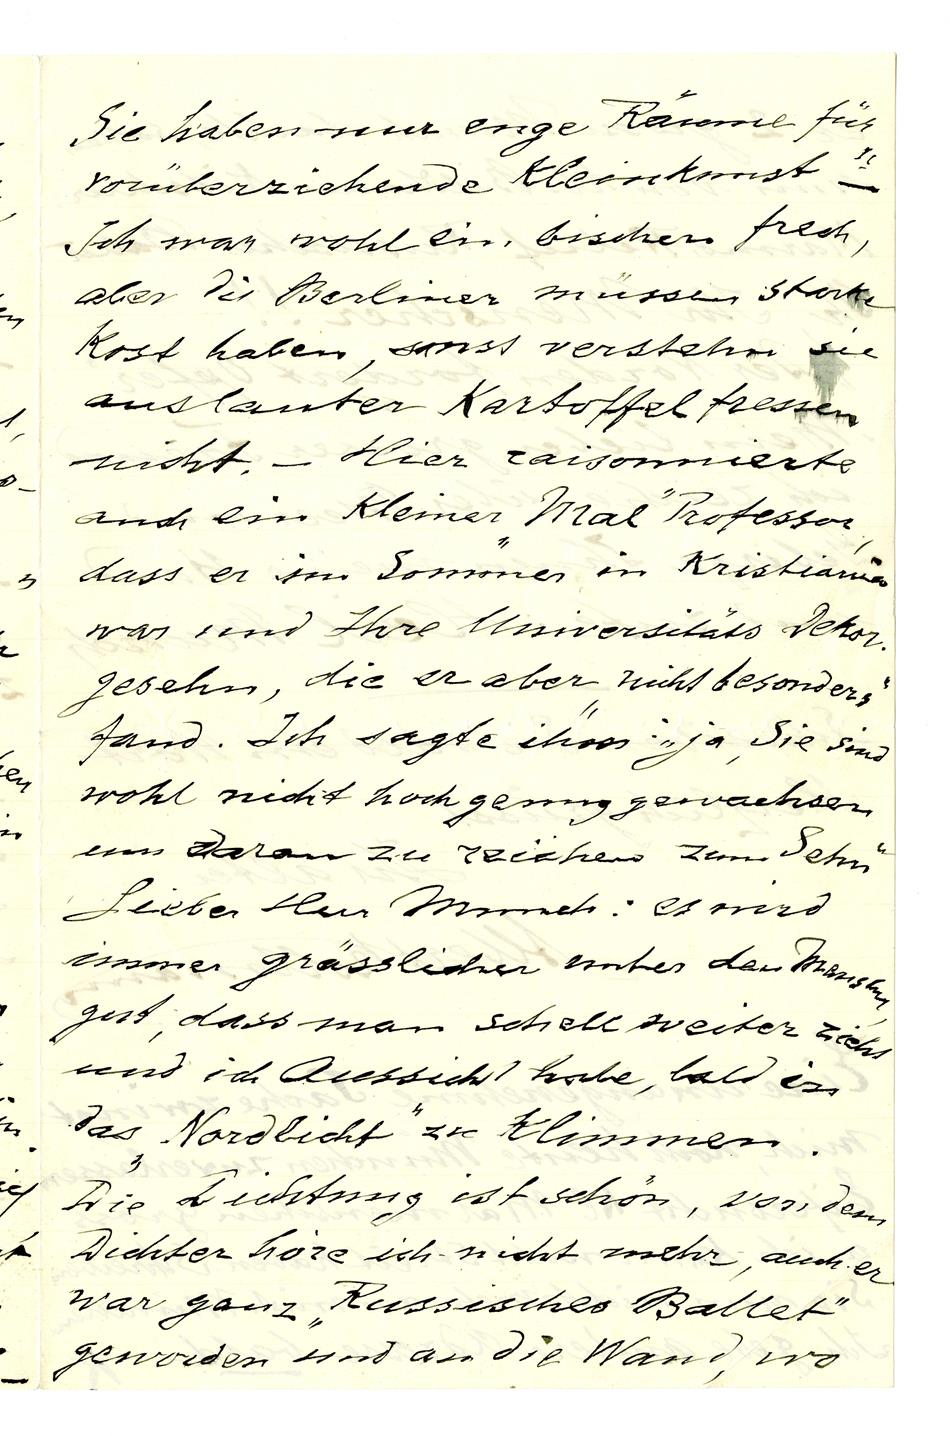 Sie haben nur enge Räume für
vorüberziehende Kleinkunst"!
Ich war wohl ein bischen frech,
aber die Berliner müssen starke
Kost haben, sonst verstehn sie
auslauter Kartoffel fressen
nicht. – Hier raisonnierte
auch ein kleiner „Mal" Professor,
dass er im Sommer in Kristiania
war und Ihre Universitäts Dekor.
gesehn, die er aber „nicht besonders"
fand. Ich sagte ihm: „ja, Sie sind
wohl nicht hoch genug gewachsen
um daran zu reichen zum Sehn"
Lieber Herr Munch: es wird
immer grässlicher unter den Menschen,
gut, dass man schell weiter zieht
und ich Aussicht habe, bald in
das „Nordlicht" zu klimmen.
Die Dichtung ist schön, von dem
Dichter höre ich nicht mehr, auch er
war ganz „Russisches Ballet"
geworden und an die Wand, wo